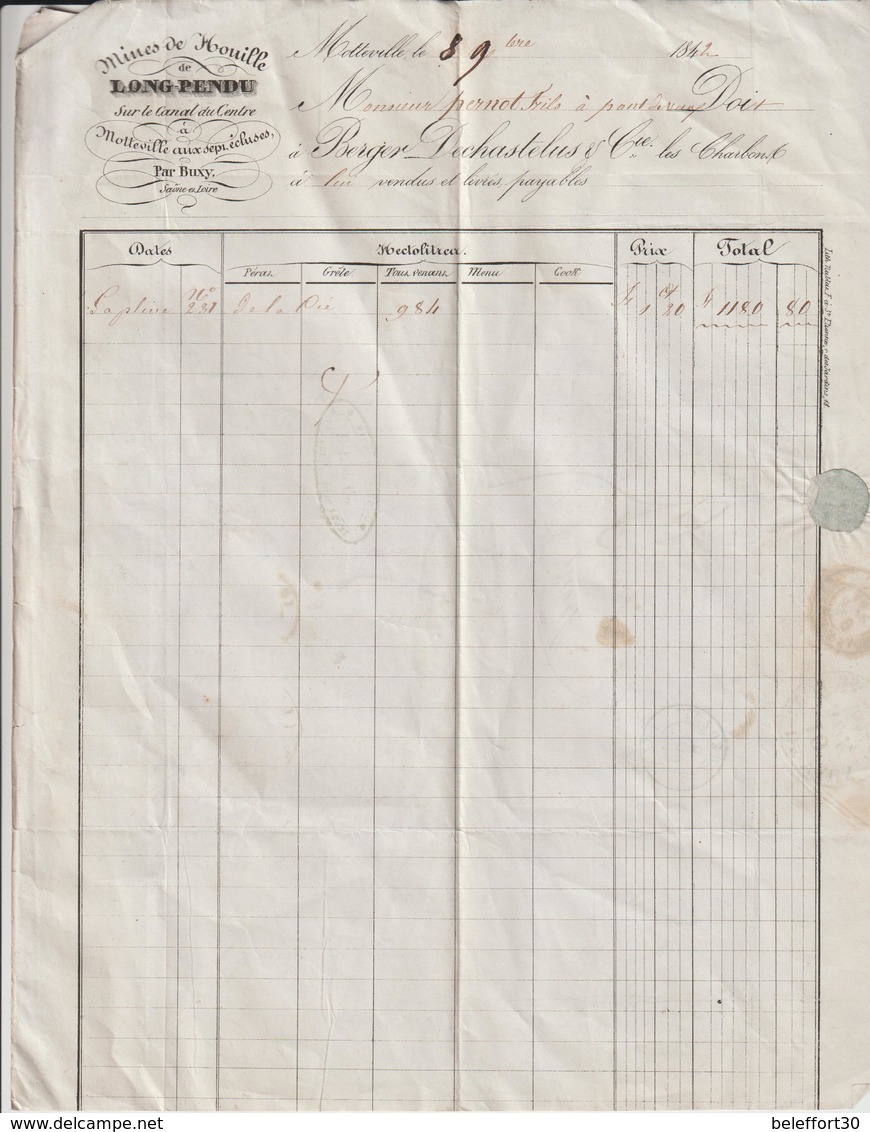 Mines de Houille
de
LONG-PENDU
Sur le Canal du Centre
à
Motteville aux sept écluses,
Par Buxy.
Saône et Loire
Motteville, le 8 9bre 1842
Monsieur pernot fils à pont de Doit
à Berger Dechastelus & Cie. les Charbons
à lui vendus et livrés, payables
Dates Hectolitres. Prix Total
Péras Grêle Tous venans Menu Cook
No 231 de la 984 fr 1 ct 20 fr 1180 80
beleffort30